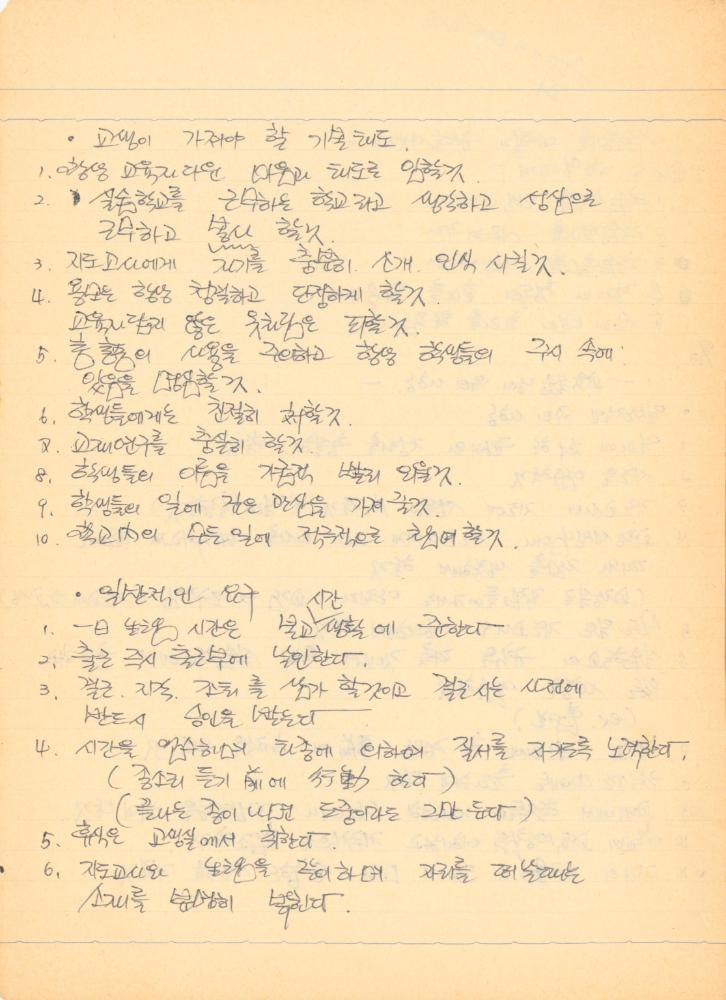 · 교생이 가져야 할 기본 태도.
1. 항상 교육자다운 마음과 태도로 임할것.
2. 실습학교를 근무하는 학교라고 생각하고 성심으로
근무하고 봉사 할것.
3. 지도교사에게 자기를 충분히 소개. 인식 시킬것.
4. 용모는 항상 청결하고 단정하게 할것.
교육자답지 않은 옷차림은 피할것.
5. 의 사용을 주의하고 항상 학생들의 주시 속에
있음을 할것.
6. 학생들에게는 친절히 대할것.
7. 교재연구를 충실히 할것.
8. 학생들의 이름을 가급적 빨리 외울것.
9. 학생들의 일에 깊은 관심을 가져 줄것.
10. 학교內의 모든 일에 적극적으로 참여할것.
· 일반적인 요구
시간
1. 一日 시간은 본교 생활 에 준한다
2. 출근 즉시 출근부에 날인한다.
3. 결근. 지각. 조퇴를 삼가 할것이고 결근시는 사전에
반드시 승인을 받는다
4. 시간을 엄수하 타종에 의하여 질서를 지키도록 노력한다.
(종소리 듣기 前에 行動 한다)
(끝나는 종이 나면 도중이라도 그만둔다)
5. 휴식은 교생실에서 취한다
6. 지도교사와 을 하며 자리를 떠날때는
소재를 분명히 한다.